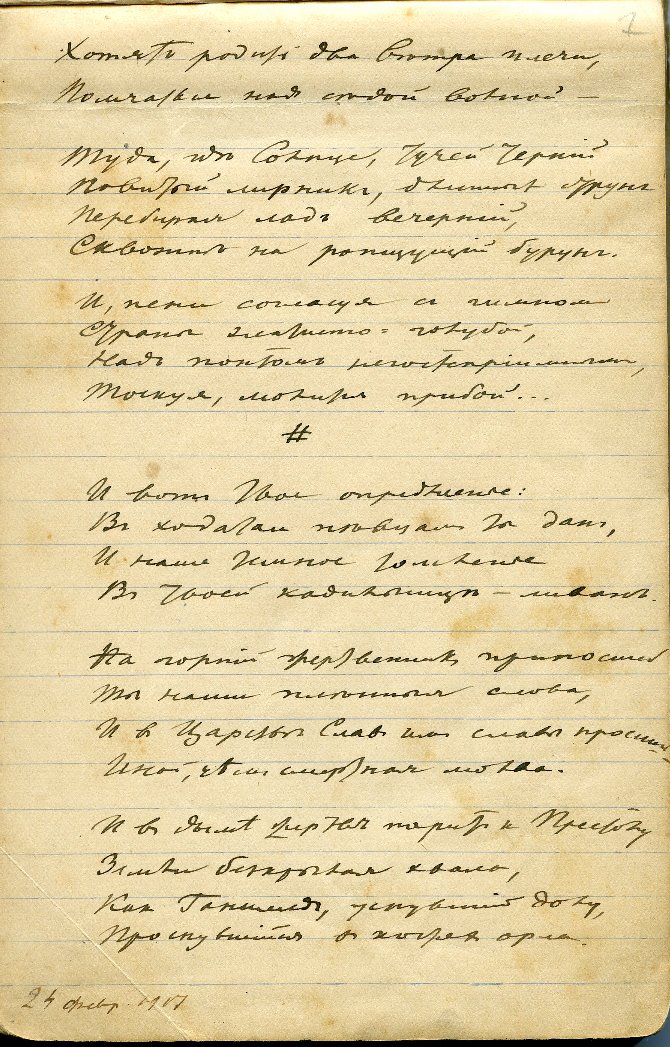 2
Хотятъ родить два вѣтра плечи,
Помчавши надъ сѣдой волной —
Туда, гдѣ Солнце, тучей черной
Повитый лирникъ, движетъ струны
Перебирая ладъ вечерній,
Сквозитъ на ропщущій бурунъ.
И, пени согласуя съ гимномъ
Страны златисто-голубой,
Надъ понтомъ негостепріимнымъ,
Тоскуя, молится прибой...
#
И вотъ Твое опредѣленіе:
Въ ходатаи пѣвцамъ ты данъ,
И наше темное томленіе
Въ твоей кадильницѣ — ливанъ.
На горній жертвенникъ приносишь
Ты наши плѣнныя слова,
И въ Царствѣ Слав имъ славы просишь
Иной, чѣмъ смертная молва.
И въ дымѣ жертвъ паритъ къ Престолу
Земли безкрылая хвала,
Какъ Ганимедъ, уснувшій долу,
Проснувшійся въ когтяхъ орла.
24 февр. 1917